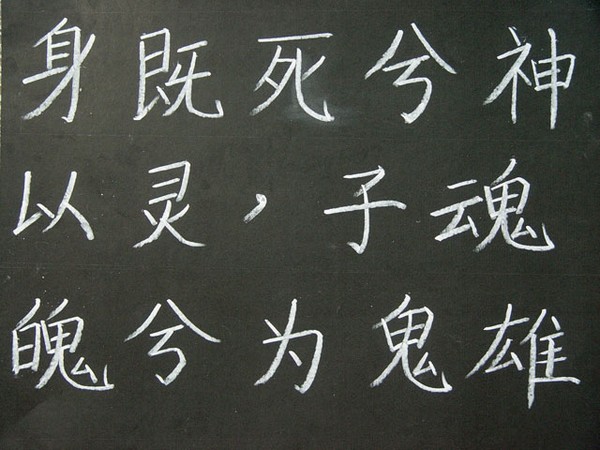 身既死兮神
以灵，子魂
魄兮为鬼雄